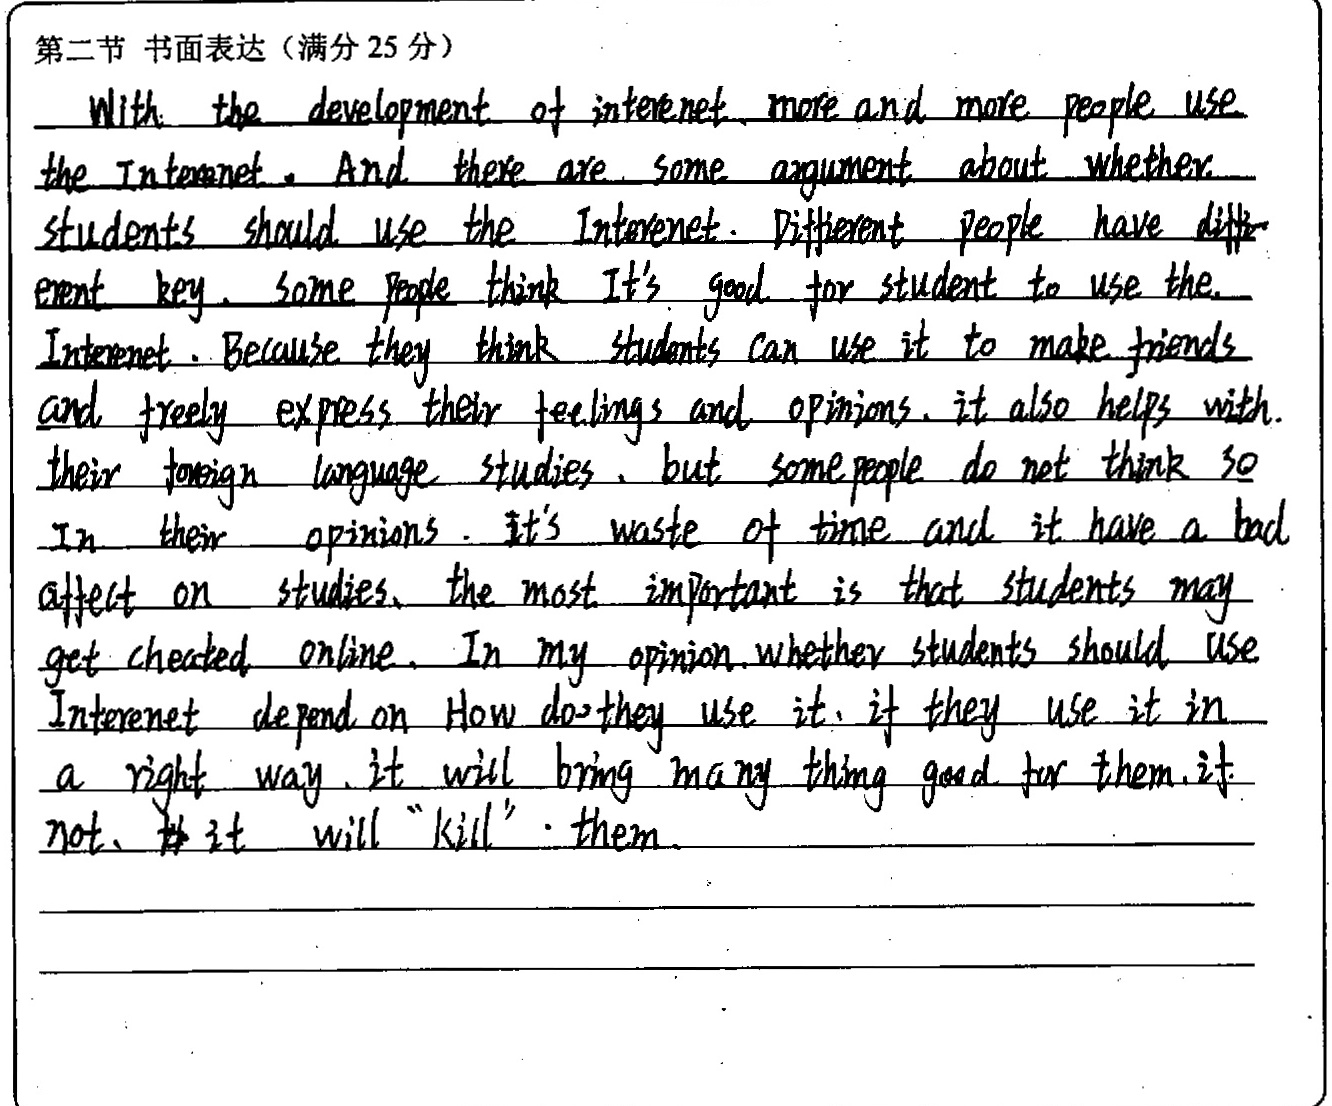 第二节 书面表达（满分 25 分）
With the development of interenet. more and more people use
the Interenet. And there are some argument about whether
students should use the Interenet. Different people have diffe-
erent key. some people think It's good for student to use the.
Interenet. Because they think students can use it to make friends
and freely express their feelings and opinions. it also helps with.
their foreign language studies. but some people do not think so
In their opinions. it's waste of time and it have a bad
affect on studies. the most important is that students may
get cheated online. In my opinion. whether students should use
Interenet depend on How do they use it. if they use it in
a right way. it will bring many thing good for them. if
not. it will "kill" them.